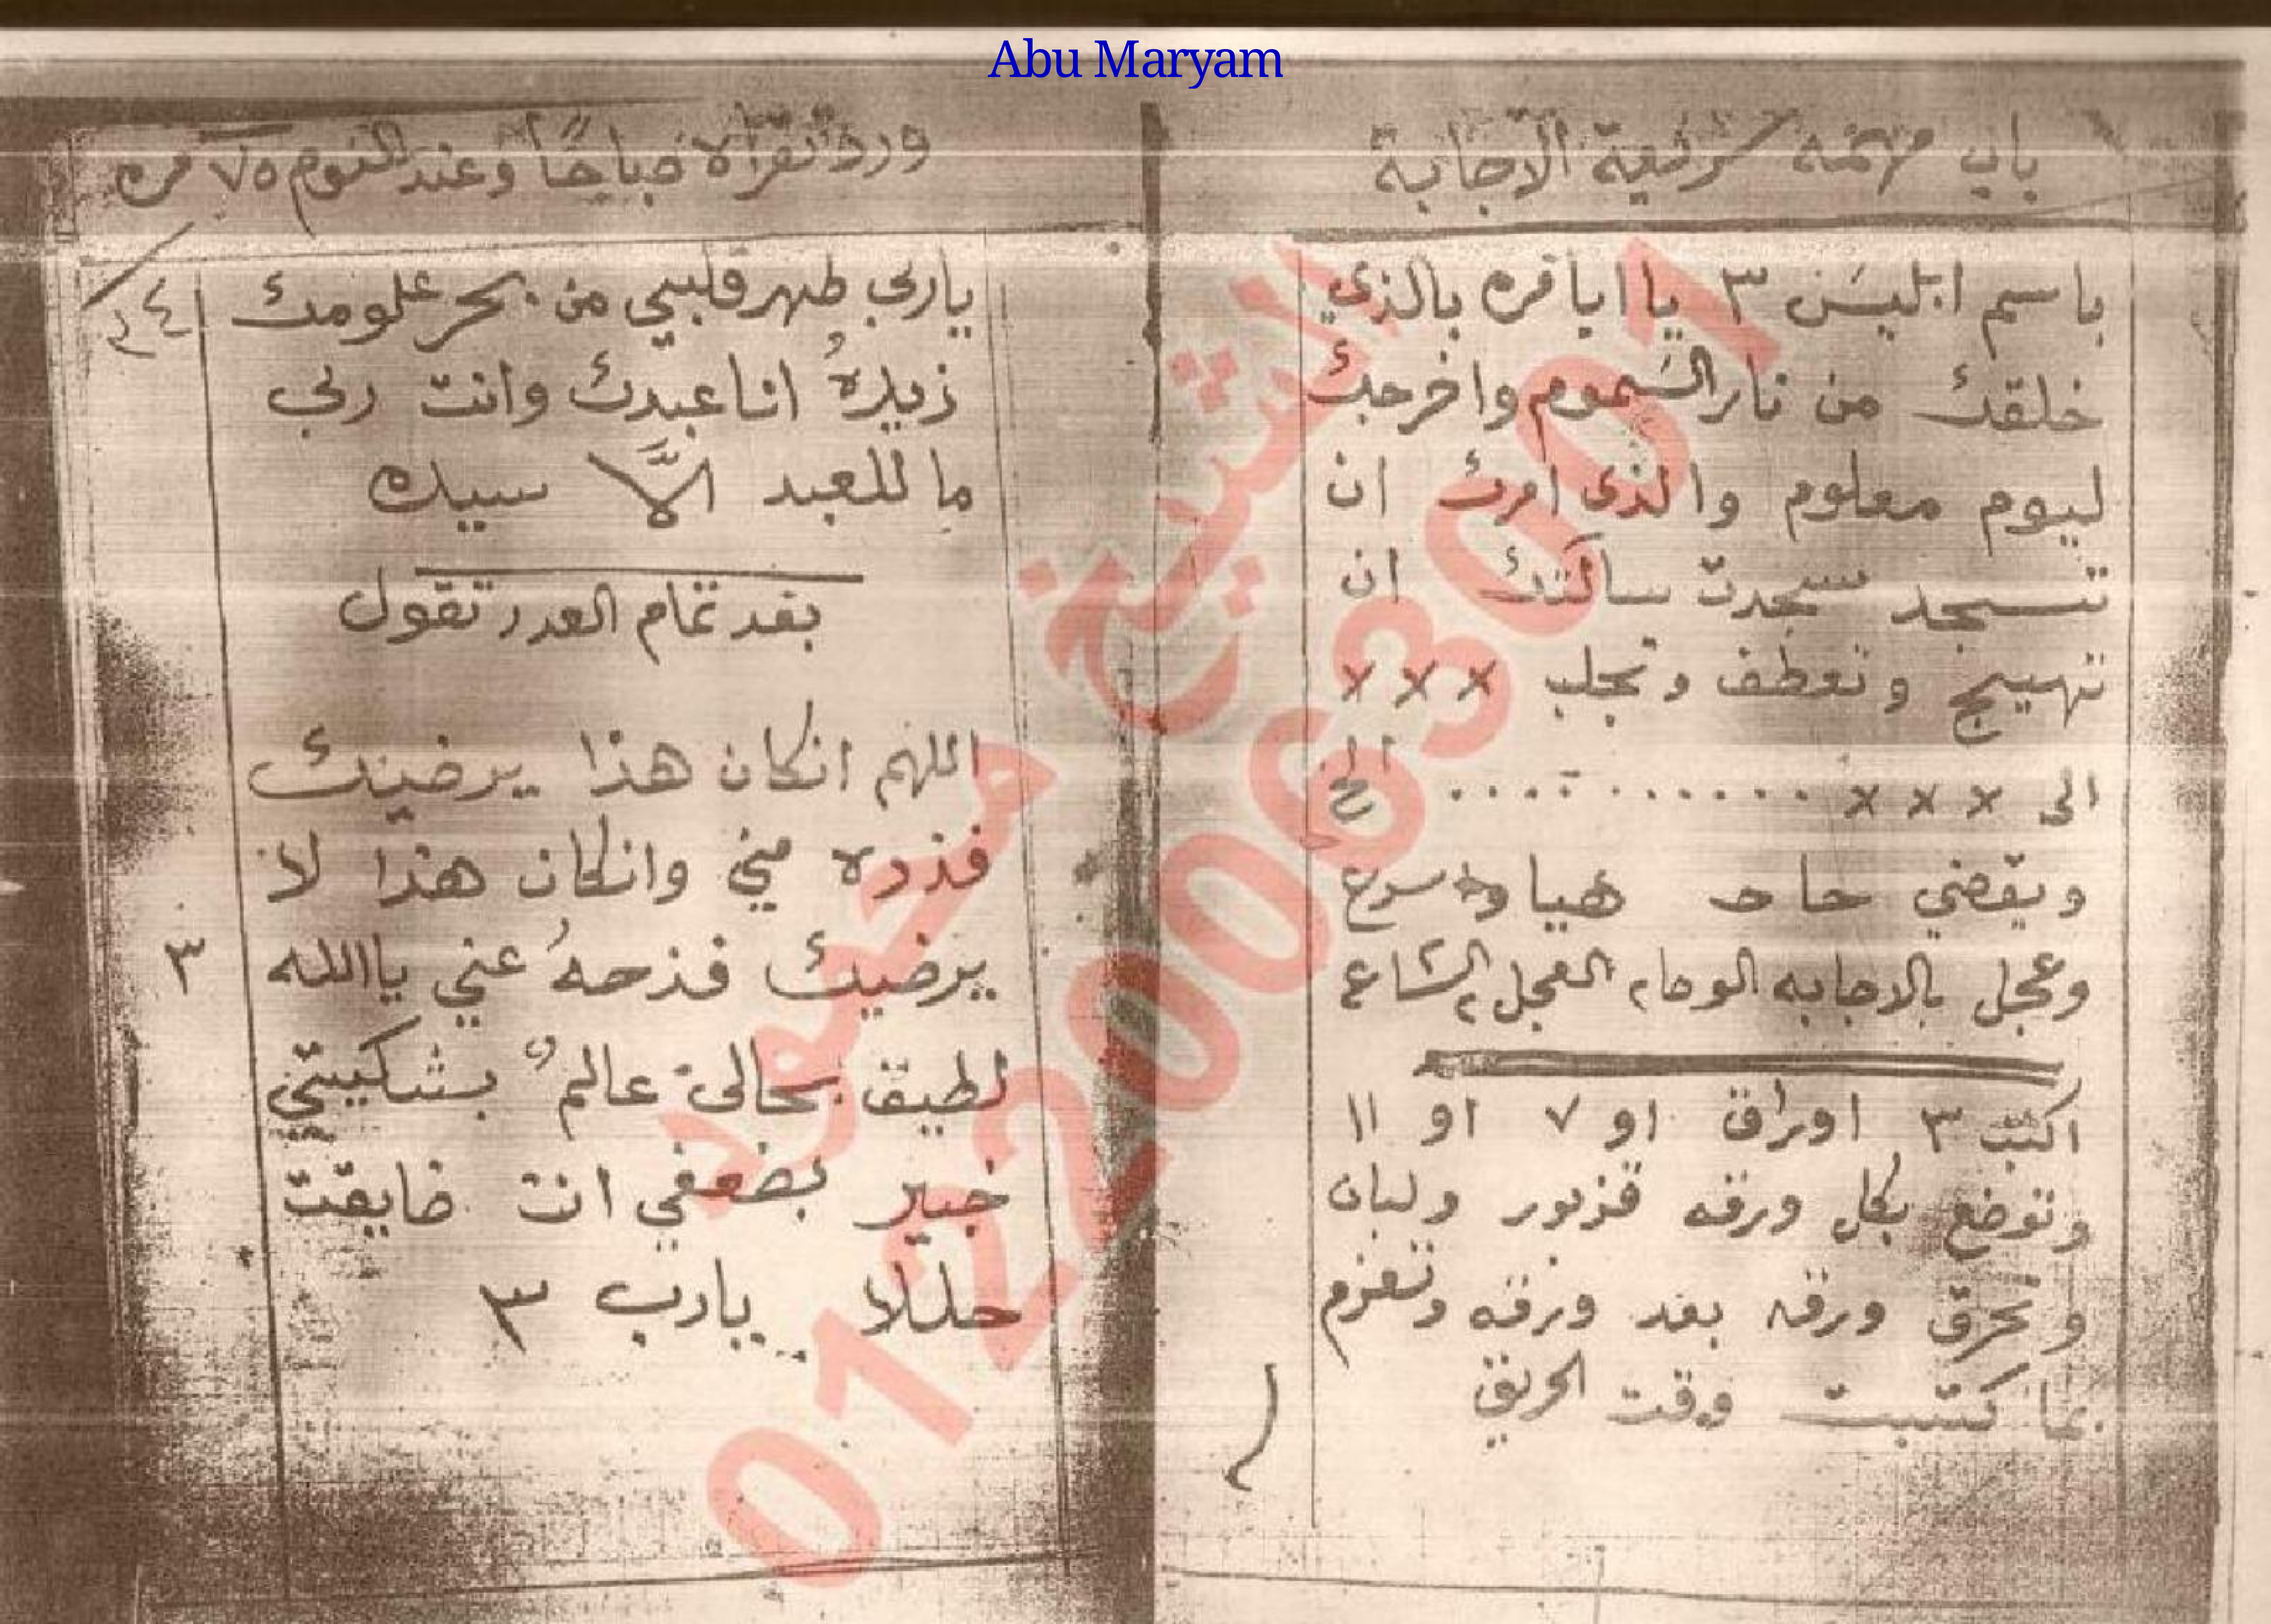 Abu Maryam
باب مهمه سرقية الاجابة
باسم ابليس ٣ يا ايا قره بالذي
خلقك من نار السموم واخرجك
ليوم معلوم والذي امرك ان
تسجد سجدت سالتك ان
تهييج وتعطف وتجلب × × ×
الى × × × ............ الخ
ويقضي حاحـ هيا وسرع
وعجل بالاجابه الوحا٢ العجل٢ الساع
اكتب ٣ اوراق او ٧ او ١١
وتوضع بكل ورقه قزبور ولبان
وتحرق ورقه بعد ورقه وتعزم
بما كتبت وقت الحريق
ورد تقرأه صباحاً وعند النوم ٧٥ مره
٣٤
ياربي طهر قلبيي من بحر علومك
زيده انا عبدك وانت ربي
ما للعبد الاَّ سيده
بعد تمام العدد تقول
اللهم انكان هذا يرضيك
فذده مني وانكان هذا لا
يرضيك فذحهُ عني ياالله ٣
لطيق بحالي عالم بشكيتي
خبير بضعفي انت ضايقت
حللا يارب ٣
الشيخ محمود
01220063001